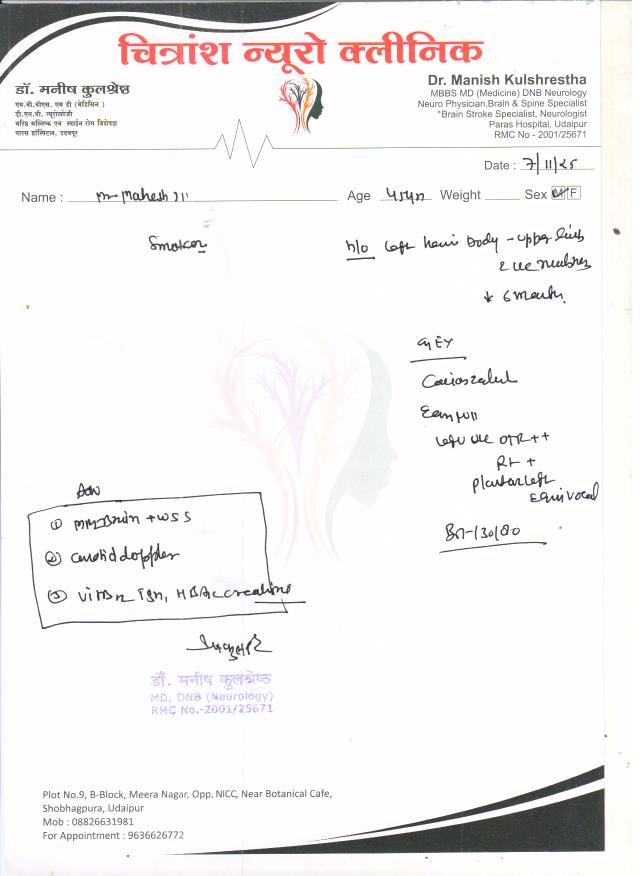 चित्रांश न्यूरो क्लीनिक
डॉ. मनीष कुलश्रेष्ठ
एम.बी.बी.एस. एम डी (मेडिसिन)
डी.एन.बी. न्यूरोलॉजी
वरिष्ठ मस्तिष्क एवं स्पाईन रोग विशेषज्ञ
पारस हॉस्पिटल, उदयपुर
Dr. Manish Kulshrestha
MBBS MD (Medicine) DNB Neurology
Neuro Physician,Brain & Spine Specialist
*Brain Stroke Specialist, Neurologist
Paras Hospital, Udaipur
RMC No - 2001/25671
Date : 7/11/25
Name : Mr Mahesh Ji Age 45yr Weight Sex M/F
Smoker
h/o left hemi body - upper limb
& LL numbness
6 month
O/E
Conscious
left DTR ++
Rt +
plantar left
equivocal
BP-130/80
Adv
① MRI Brain + WSS
② carotid doppler
③ Vit B12, TSH, HBA1c creatinine
डॉ. मनीष कुलश्रेष्ठ
MD, DNB (Neurology)
RMC No.-2001/25671
Plot No.9, B-Block, Meera Nagar, Opp. NICC, Near Botanical Cafe,
Shobhagpura, Udaipur
Mob : 08826631981
For Appointment : 9636626772